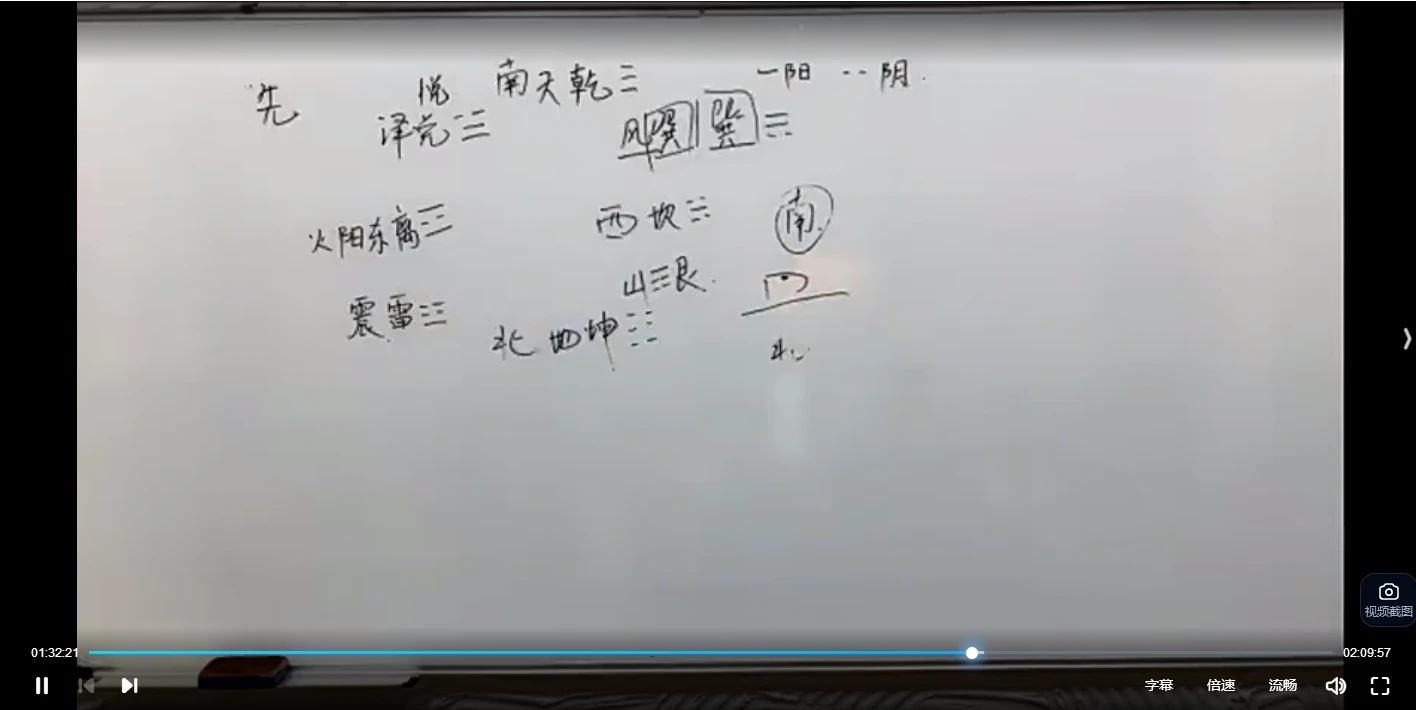 先
悦
南天乾☰
一阳 -- 阴.
泽兑☱
风巽 巽☴
火阳东离☲
西坎☵
南
山☶艮.
震雷☳
北地坤☷
北
视频截图
01:32:21
02:09:57
字幕 倍速 流畅